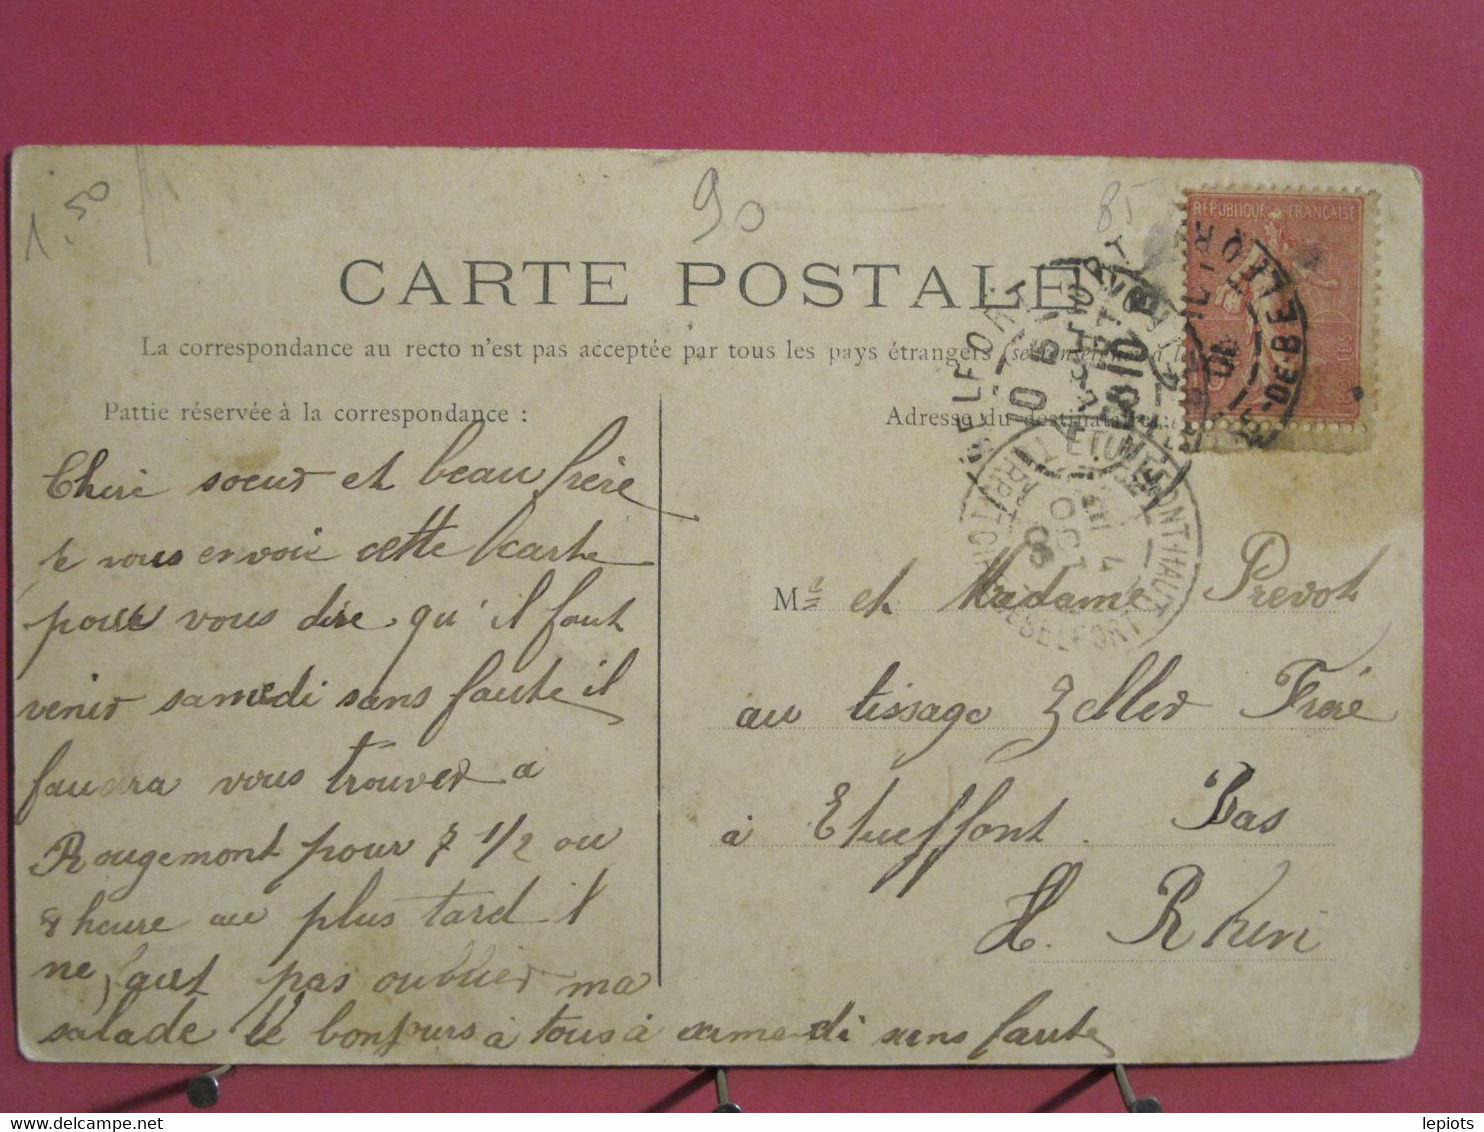 1.50
90
85
CARTE POSTALE
La correspondance au recto n'est pas acceptée par tous les pays étrangers (se renseigner à la
Pattie réservée à la correspondance :
Cheri soeur et beau frère
je vous envoie cette carte
pour vous dire qu'il faut
venir samedi sans faute il
faudra vous trouver a
Rougemont pour 7 1/2 ou
8 heure au plus tard il
ne faut pas oublier ma
salade le bonjours à tous à samedi sans faute
REPUBLIQUE FRANÇAISE
POSTES
BELFORT
10
OCT
06
ETUEFFONT-HAUT
Adresse du destinataire :
Mr et Madame Prevot
au tissage Zeller Frère
à Etueffont Bas
H. Rhin
lepiots